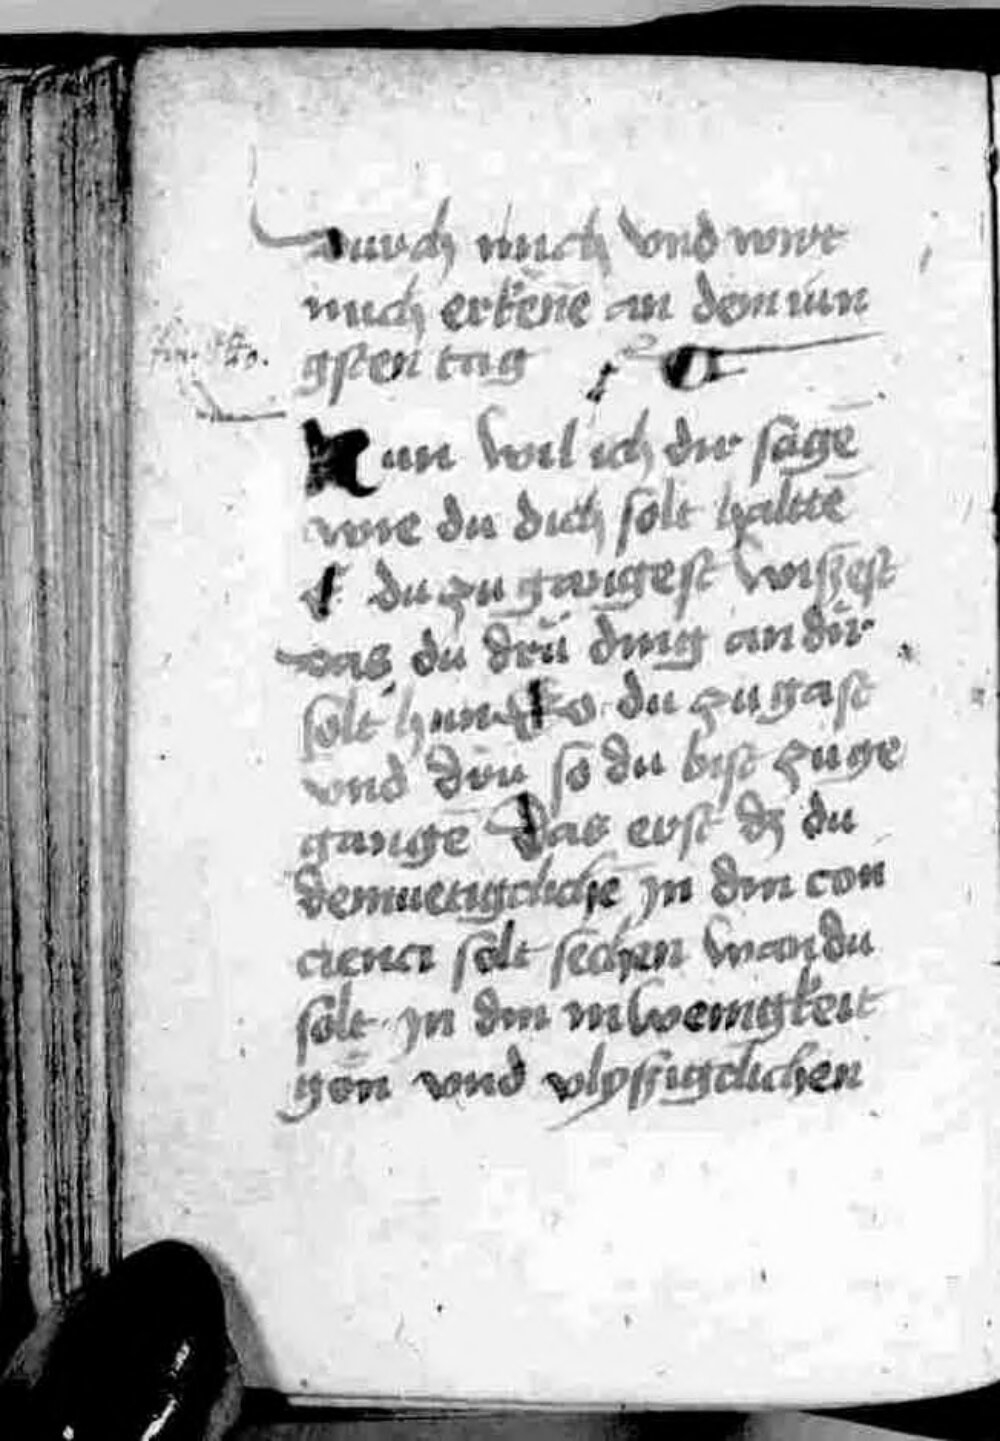 durch mich vnd wirt
mich erkēne an dem iun
gsten tag
Nun wil ich dir sagē
wie du dich solt haltē
so du zu gangest wissest
das du drü ding an dir
solt hun so du zu gast
vnd drü so du bist zu ge
gangē Das erst dz du
demuetigcliche jn din con
cienci solt sechen wan du
solt jn din inwenigkeit
gon vnd vlyssigclichen